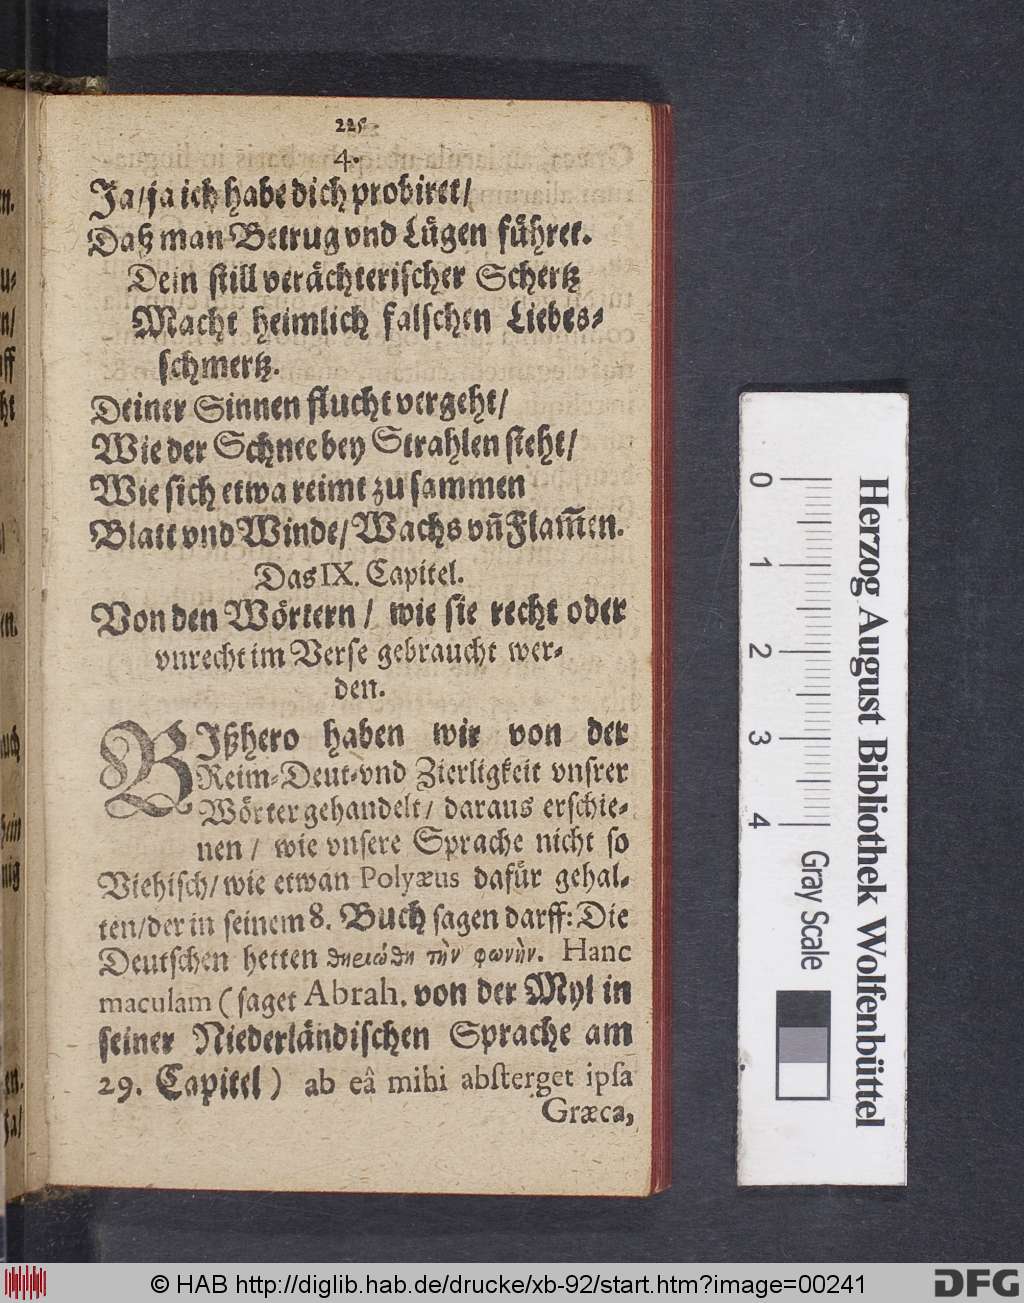 225
4.
Ja/ja ich habe dich probiret/
Daß man Betrug vnd Lügen führet.
Dein still verächterischer Schertz
Macht heimlich falschen Liebes-
schmertz.
Deiner Sinnen flucht vergeht/
Wie der Schnee bey Strahlen steht/
Wie sich etwa reimt zu sammen
Blatt vnd Winde/Wachs vñ Flam̃en.
Das IX. Capitel.
Von den Wörtern / wie sie recht oder
vnrecht im Verse gebraucht wer-
den.
BIßhero haben wir von der
Reim-Deut-vnd Zierligkeit vnsrer
Wörter gehandelt/ daraus erschie-
nen / wie vnsere Sprache nicht so
Viehisch/wie etwan Polyæus dafür gehal-
ten/der in seinem 8. Buch sagen darff: Die
Deutschen hetten θηριώδη τὴν φωνὴν. Hanc
maculam (saget Abrah. von der Myl in
seiner Niederländischen Sprache am
29. Capitel) ab eâ mihi absterget ipsa
Græca,
0 1 2 3 4
Gray Scale
Herzog August Bibliothek Wolfenbüttel
© HAB http://diglib.hab.de/drucke/xb-92/start.htm?image=00241
DFG